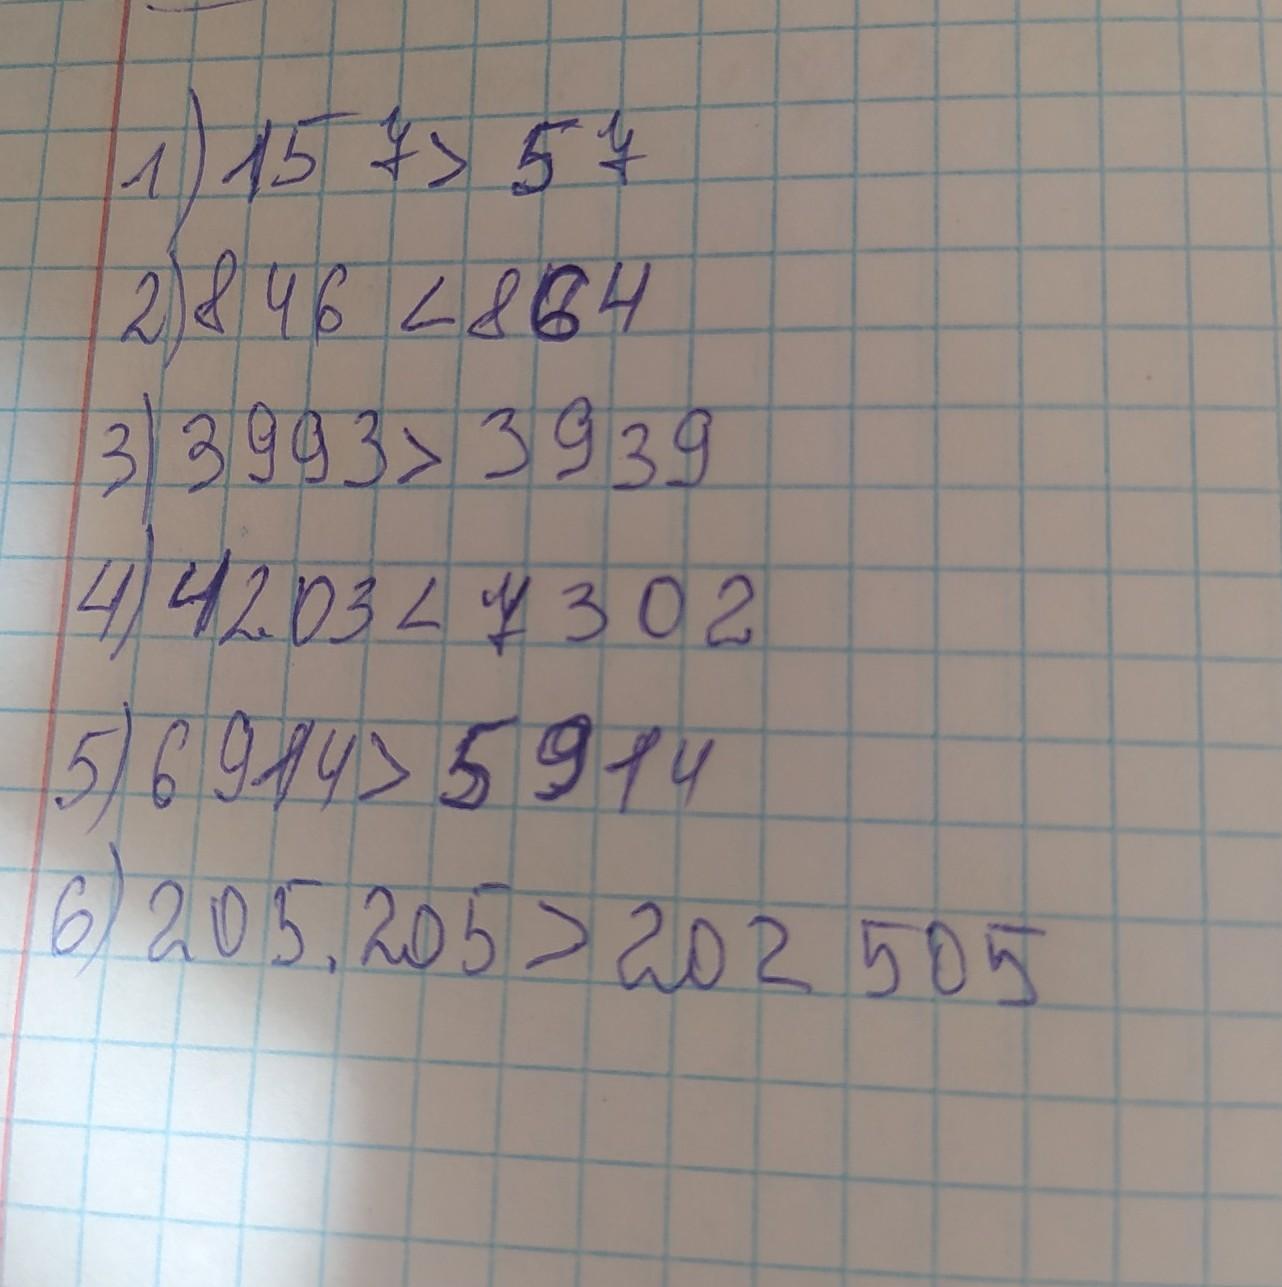 1) 157 > 57
2) 846 < 864
3) 3993 > 3939
4) 4203 < 7302
5) 6914 > 5914
6) 205.205 > 202 505